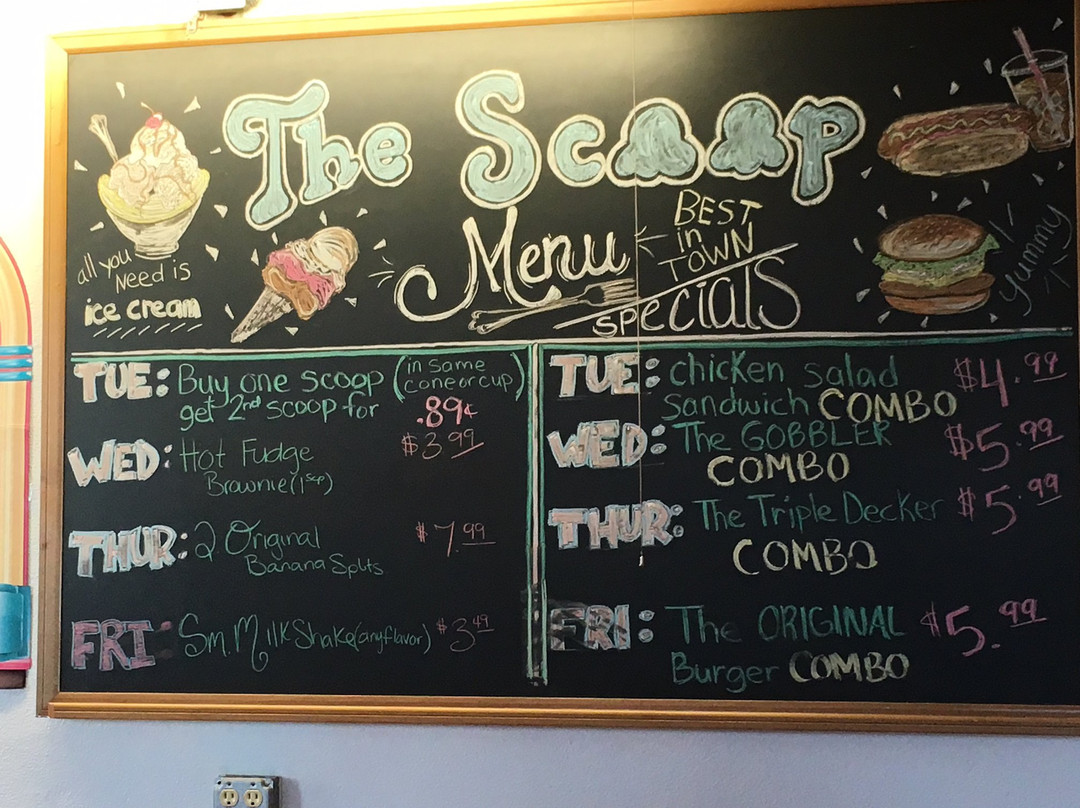 The Scoop
Menu
BEST
in
TOWN
specials
all you
Need is
ice cream
yummy
TUE: Buy one scoop (in same
cone or cup)
get 2nd scoop for .89¢
WED: Hot Fudge $3.99
Brownie (1 scp)
THUR: 2 Original $7.99
Banana Splits
FRI: Sm. Milk Shake (any flavor) $3.49
TUE: chicken salad $4.99
sandwich COMBO
WED: The GOBBLER $5.99
COMBO
THUR: The Triple Decker $5.99
COMBO
FRI: The ORIGINAL $5.99
Burger COMBO